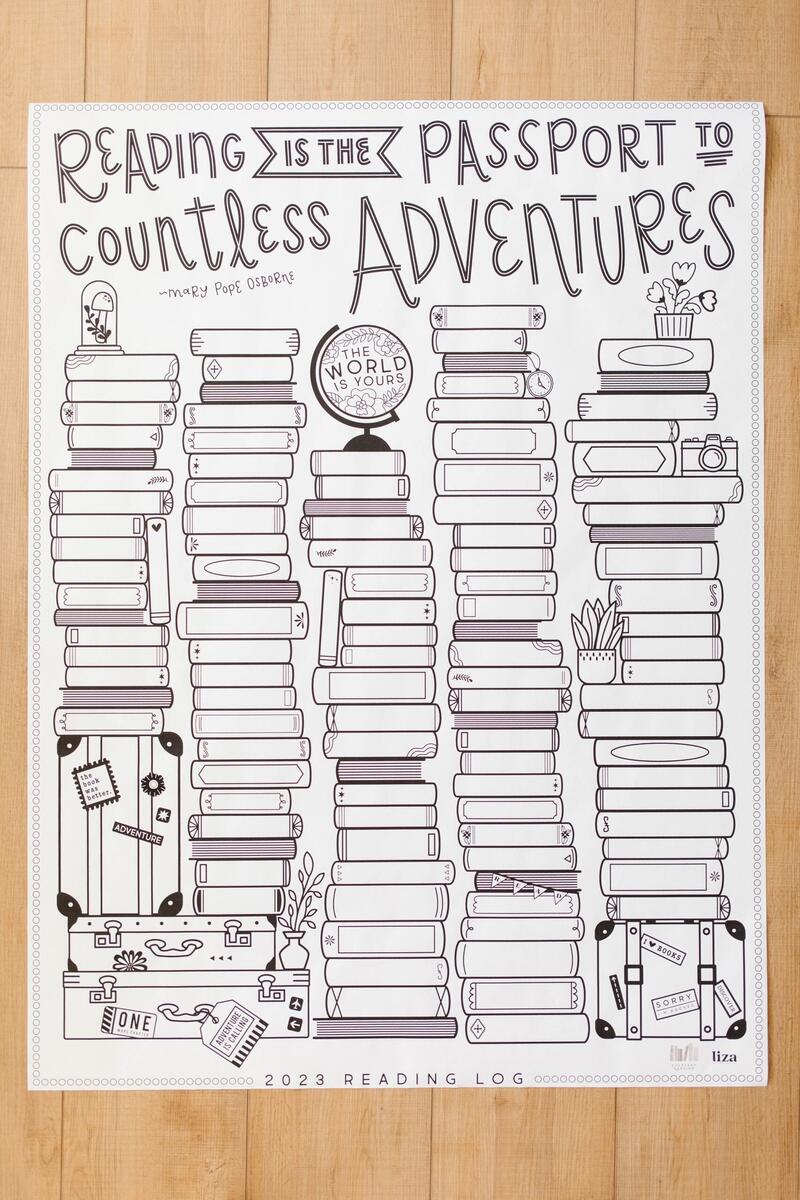 READING IS THE PASSPORT TO
COUNTLESS ADVENTURES
~MARY POPE OSBORNE
THE
WORLD
IS YOURS
the
book
was
better.
ADVENTURE
READ
I ♥ BOOKS
SORRY
I'M BOOKED
DISCOVER
ONE
MORE CHAPTER
ADVENTURE
IS CALLING
liza
2023 READING LOG